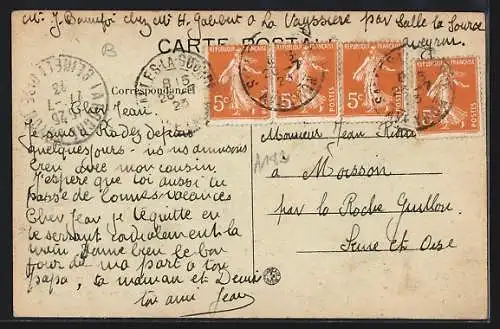 Mr J. chez Mr H. Galtent à La Vayssière par Salle la Source
Aveyron
CARTE POSTALE
RÉPUBLIQUE FRANÇAISE RÉPUBLIQUE FRANÇAISE RÉPUBLIQUE FRANÇAISE RÉPUBLIQUE FRANÇAISE
5c 5c 5c 5c
POSTES POSTES POSTES POSTES
Correspondance
Cher Jean.
Je suis à Rodez depuis
quelques jours - nous nous amusons
bien avec mon cousin.
J'espère que toi aussi tu
passe de bonnes vacances
Cher Jean je te quitte en
te serrant cordialement la
main. Donne bien le bon
jour de ma part à ton
papa, ta maman et Denis
ton ami Jean
Monsieur Jean
à Moisson
par la Roche Guillon
Seine et Oise